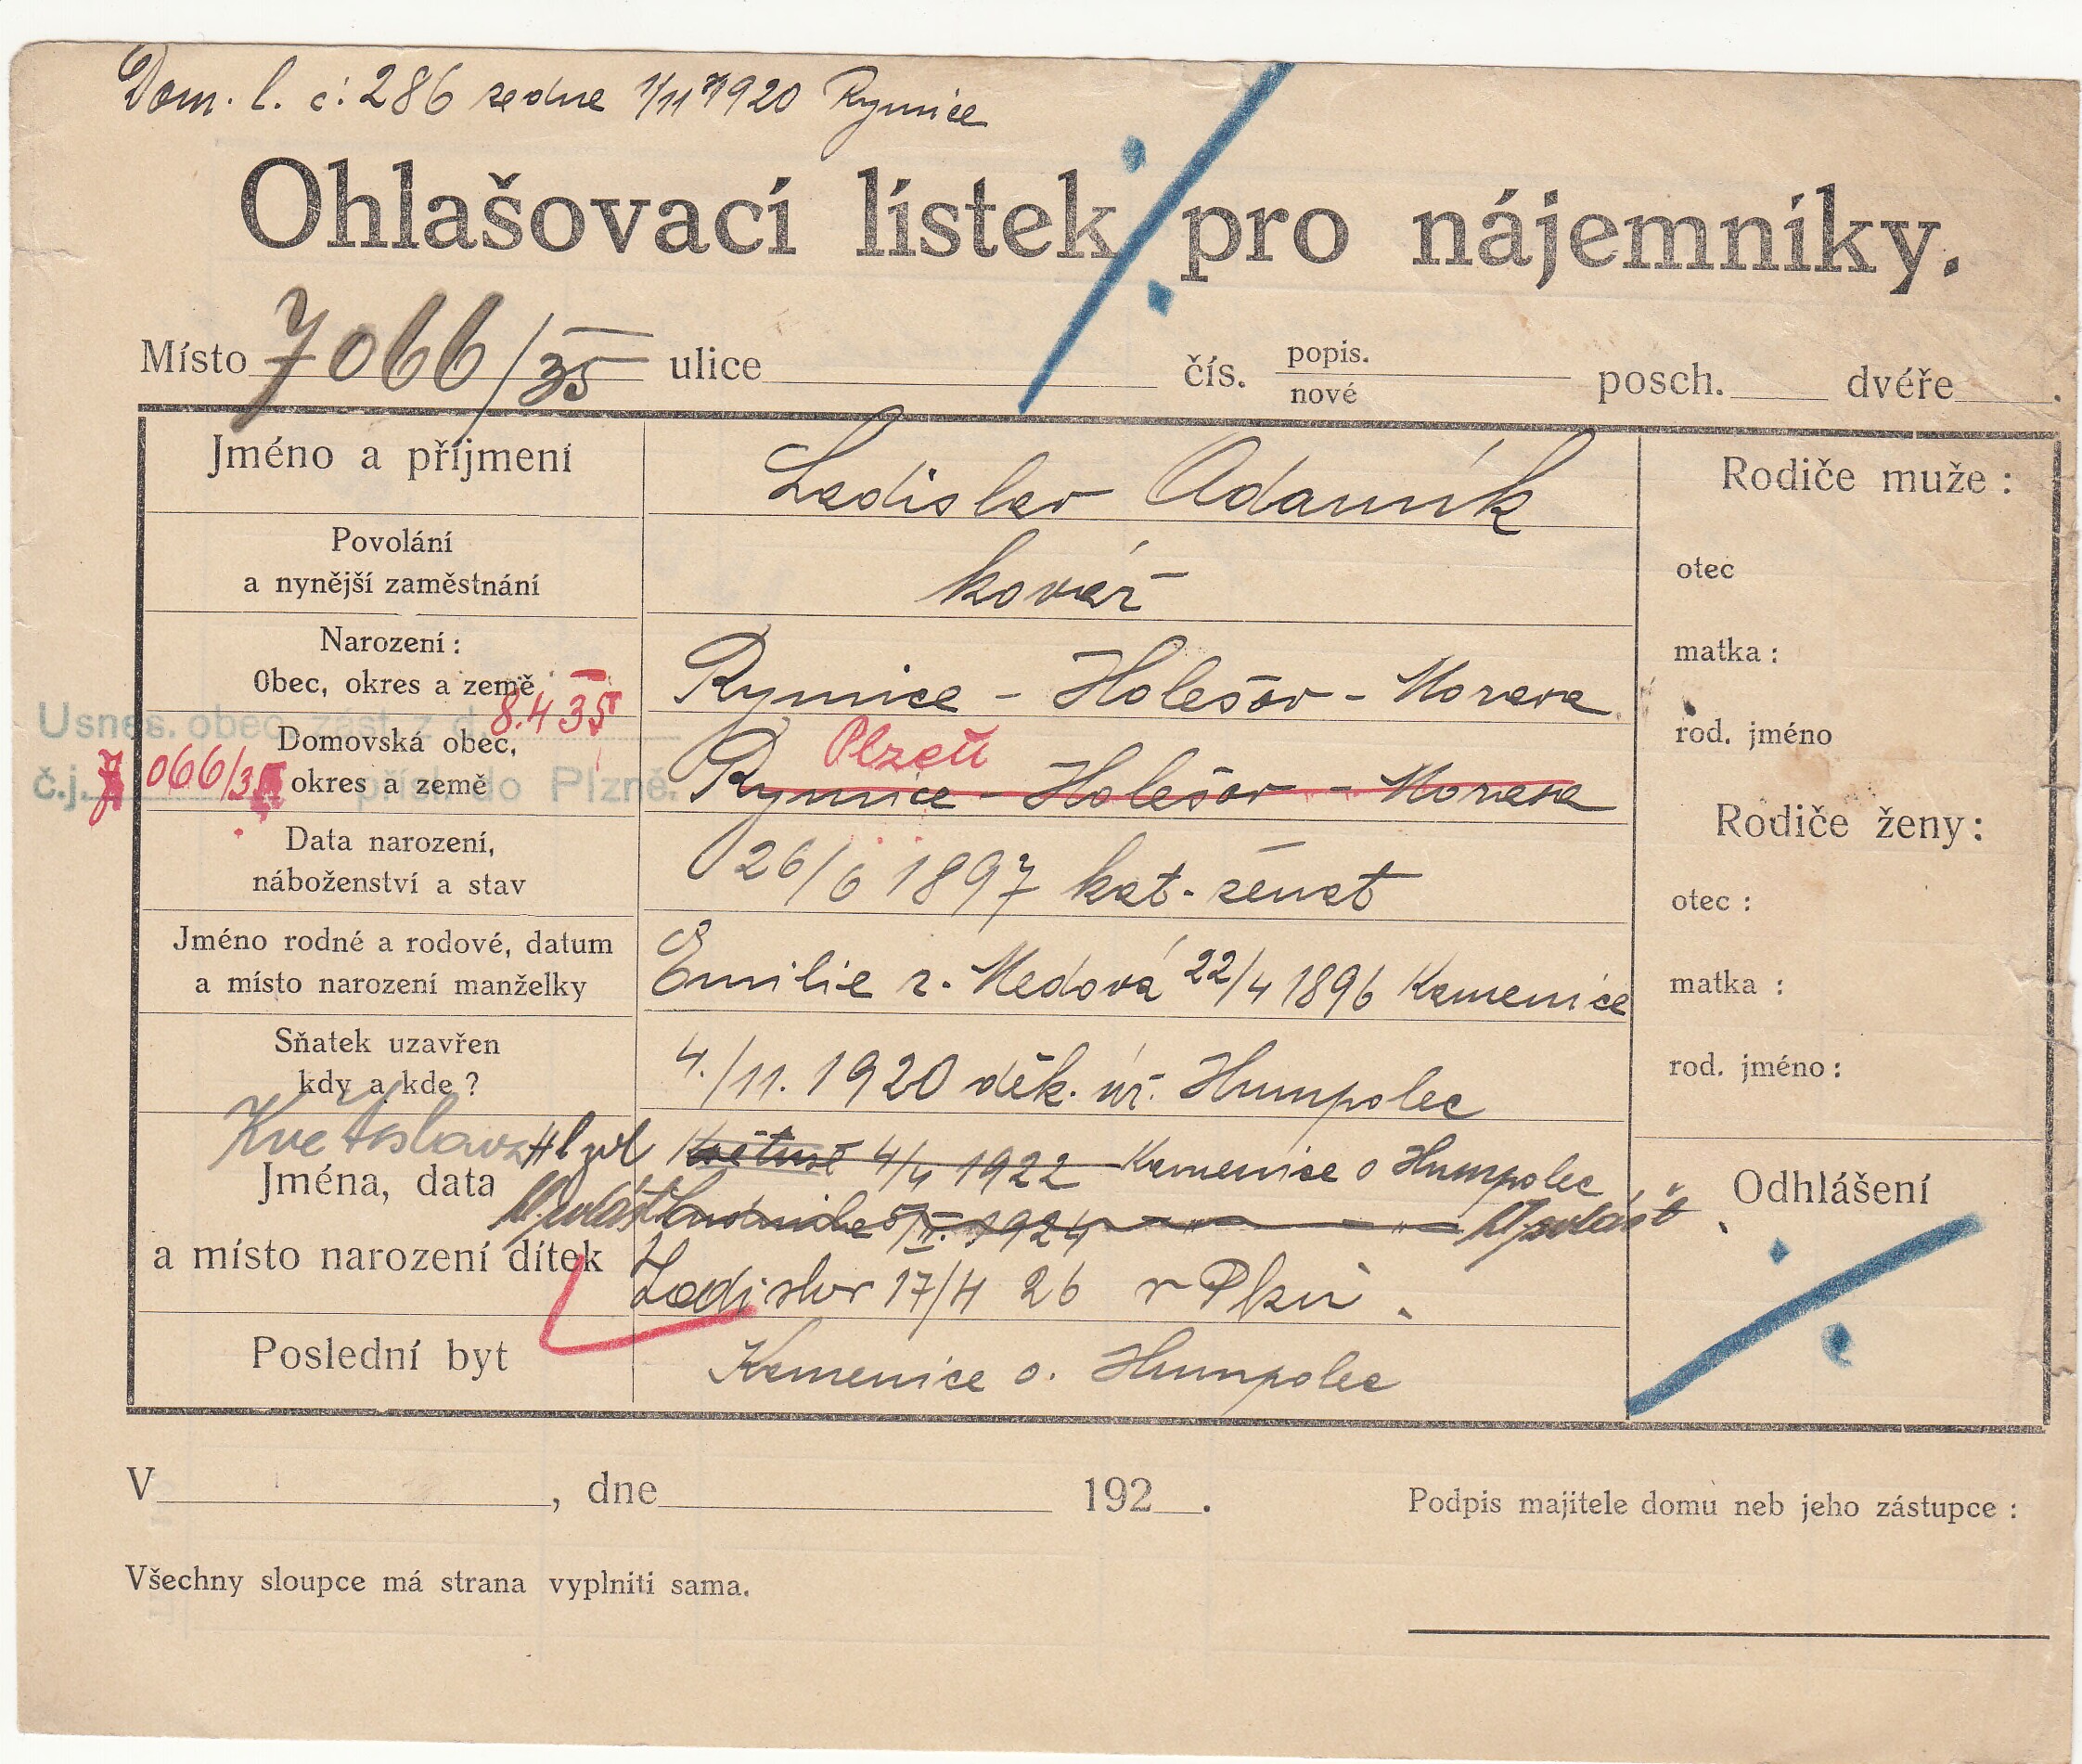 Dom. l. č. 286 ze dne 1/11 1920 Rymice
Ohlašovací lístek pro nájemníky.
Místo 7066/35 ulice čís. popis. nové posch. dvéře .
Jméno a příjmení Ladislav Adamík
Rodiče muže :
Povolání
a nynější zaměstnání kovář
otec
Narození :
Obec, okres a země Rymice - Holešov - Morava
matka :
Usnes. obec. zást. z d. 8.4 35
Domovská obec, Plzeň
rod. jméno
č.j. 7066/35 přísl. do Plzně.
okres a země Rymice - Holešov - Morava
Rodiče ženy :
Data narození,
náboženství a stav 26/6 1897 kat. ženat
otec :
Jméno rodné a rodové, datum
a místo narození manželky Emilie r. Medová 22/4 1896 Kamenice
matka :
Sňatek uzavřen
kdy a kde ? 4./11. 1920 děk. úř. Humpolec
rod. jméno :
Květoslava 4/4 1922 Kamenice o Humpolec
Jména, data
Odhlášení
5/II. 1924 - " - " -
a místo narození dítek
Ladislav 17/4 26 v Plzni.
Poslední byt Kamenice o. Humpolec
V , dne 192 .
Podpis majitele domu neb jeho zástupce :
Všechny sloupce má strana vyplniti sama.